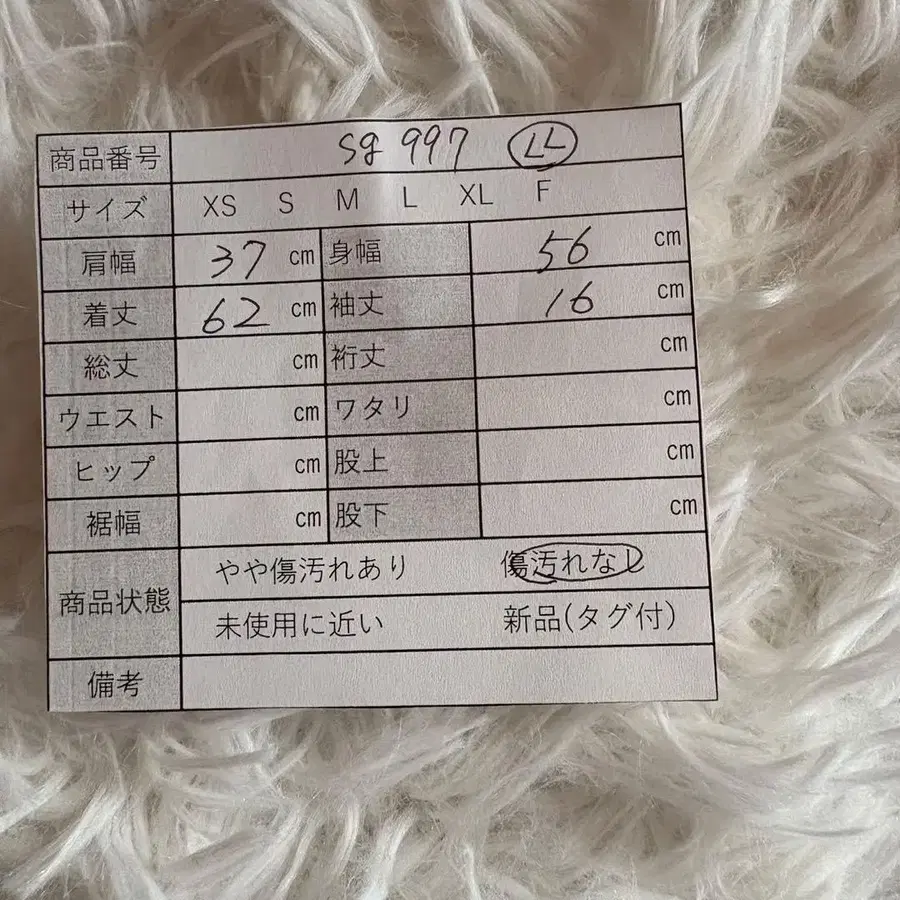 商品番号 sg 997 LL
サイズ XS S M L XL F
肩幅 37 cm 身幅 56 cm
着丈 62 cm 袖丈 16 cm
総丈 cm 裄丈 cm
ウエスト cm ワタリ cm
ヒップ cm 股上 cm
裾幅 cm 股下 cm
商品状態 やや傷汚れあり 傷汚れなし
未使用に近い 新品(タグ付)
備考